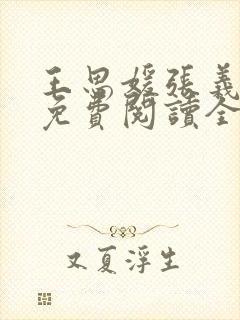 王思媛張義
免費閱讀全
又夏浮生